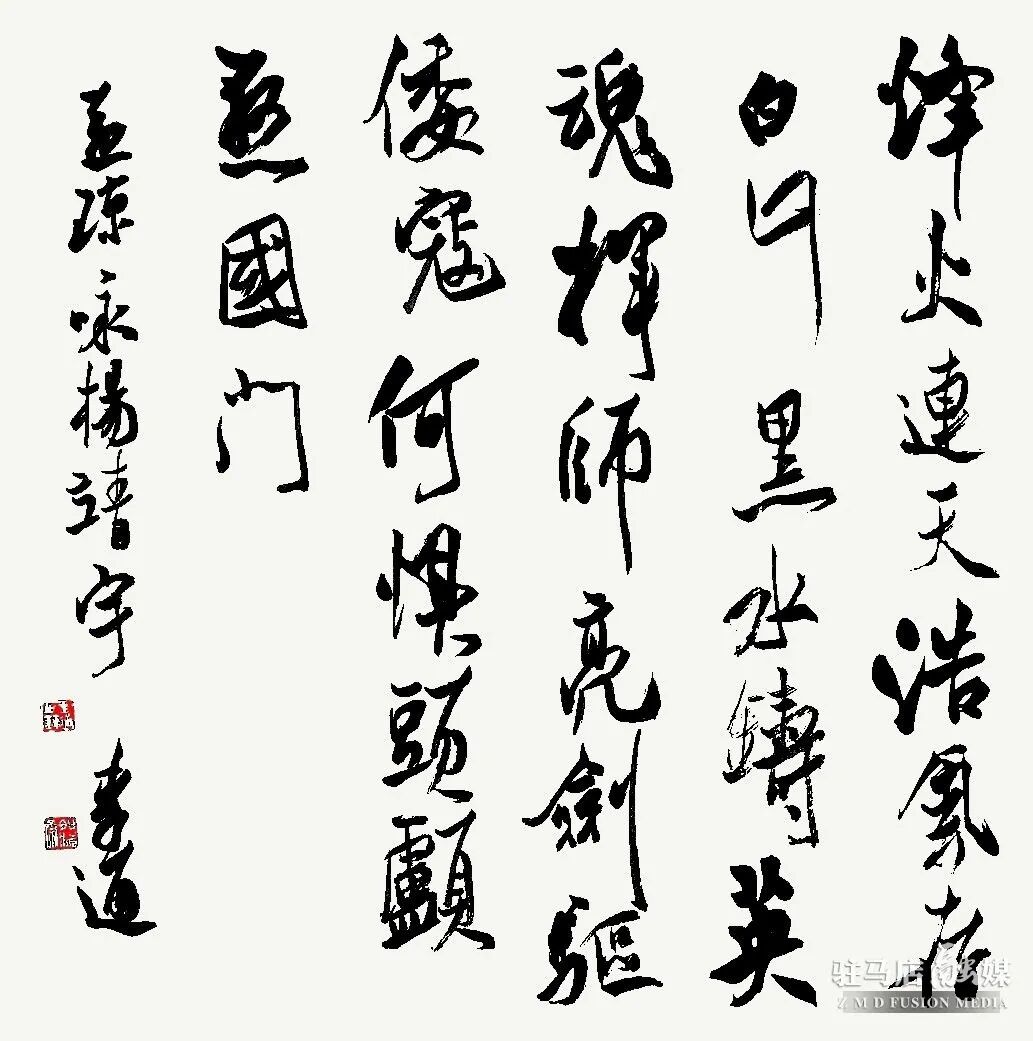 烽火連天浩氣存
白山黑水鑄英
魂揮師亮劍驅
倭寇何懼頭顱
懸國門
咏楊靖宇
李通
驻马店融媒
ZMD FUSION MEDIA